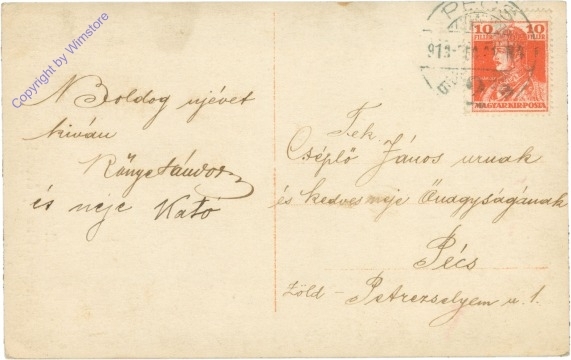 Copyright by Wimstore
PÉCS
10 10
FILLÉR FILLÉR
MAGYAR KIR. POSTA
N Boldog ujévet
kiván
Rónge Sándor
és neje Kató
Tek.
Cséplő János urnak
és kedves neje Őnagyságának
Pécs
Zöld - Petrezselyem u. 1.